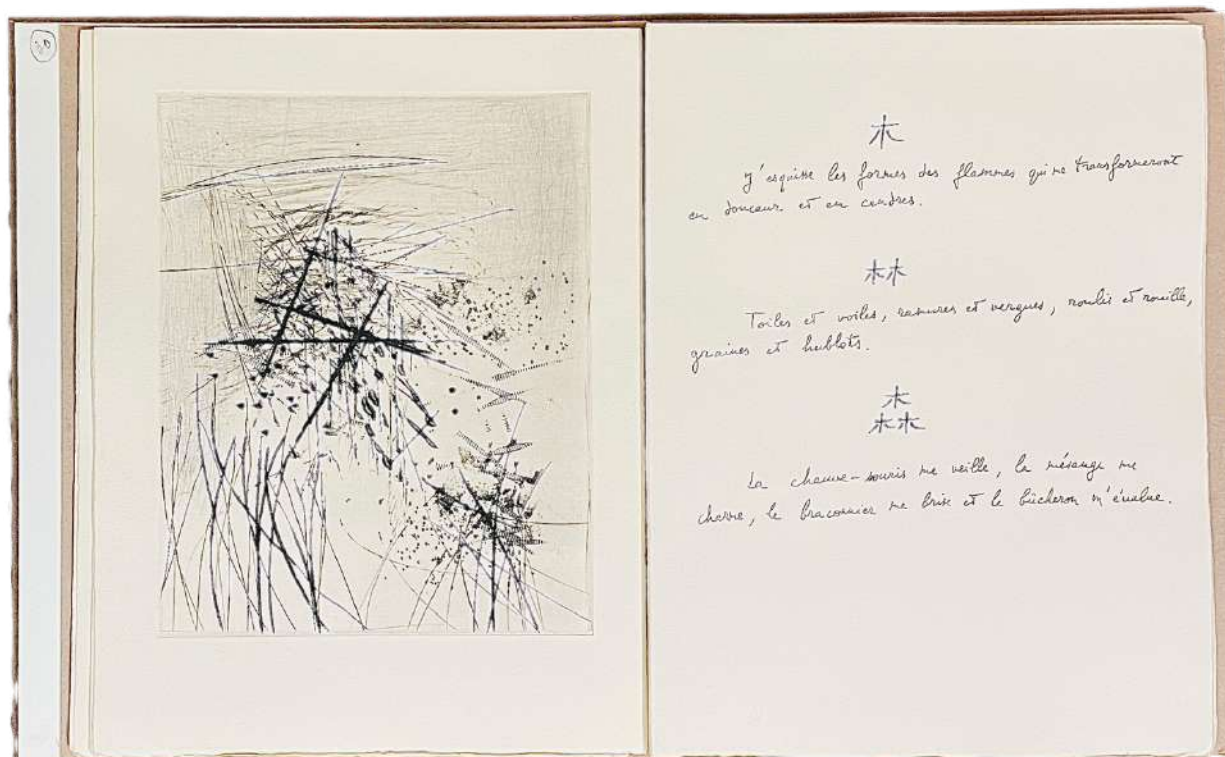 木
J'esquisse les formes des flammes qui me transformeront
en douceur et en cendres.
木木
Toiles et voiles, ramures et vergues, roulis et rouille,
graines et hublots.
木
木木
La chauve-souris me veille, la mésange me
charme, le braconnier me brise et le bûcheron m'évalue.